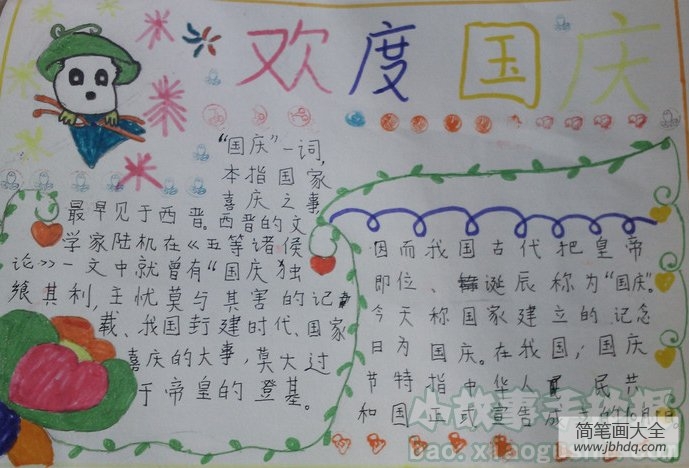 欢度国庆
"国庆"一词,
本指国家
喜庆之事
最早见于西晋。西晋的文
学家陆机在《五等诸侯
论》一文中就曾有"国庆独
飨其利,主忧莫与其害的记
载、我国封建时代、国家
喜庆的大事,莫大过
于帝皇的登基。
因而我国古代把皇帝
即位、诞辰称为"国庆"。
今天称国家建立的记念
日为国庆。在我国,国庆
节特指中华人民共
和国正式宣告成立的
小故事手抄报
bao.xiaogushi
简笔画大全
www.jbhdq.com